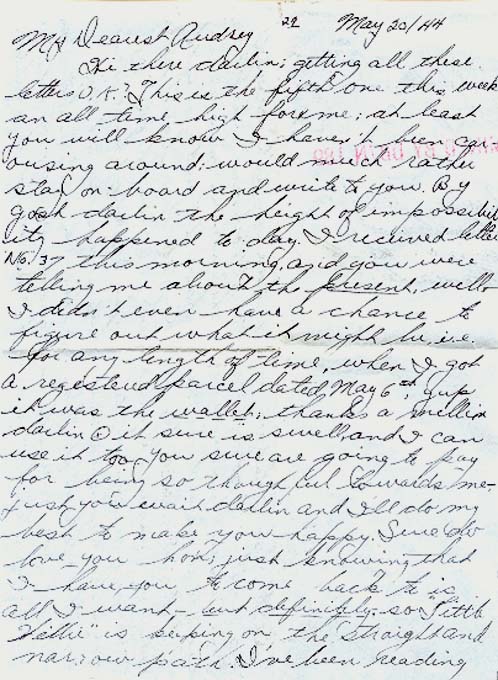 22 May 20/44
My Dearest Audrey
Hi there darlin; getting all these
letters O.K.? This is the fifth one this week
an all time high for me; at least
you will know I haven't been car-
ousing around; would much rather
stay on board and write to you. By
gosh darlin the height of impossibil
ity happened to day. I received letter
No. 37 this morning, and you were
telling me about the present, well
I didn't even have a chance to
figure out what it might be, i.e.
for any length of time, when I got
a registerd parcel dated May 6th, yup
it was the wallet; thanks a million
darlin it sure is swell, and I can
use it too, you sure are going to pay
for being so thoughtful towards me-
just you wait darlin and I'll do my
best to make you happy. Sure do
love you hon; just knowing that
I have you to come back to is
all I want - but definitely. so "Little
" is keeping on the straight and
narrow path. I've been reading